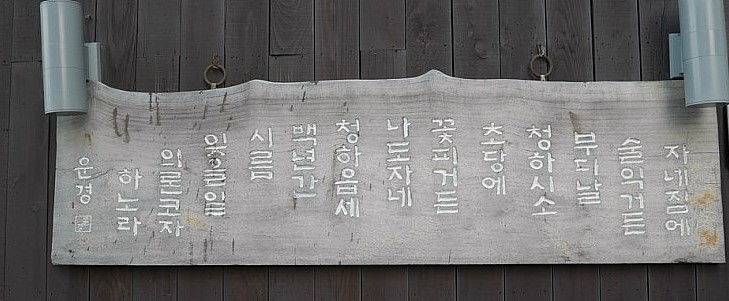 자네집에
술익거든
부디날
청하시소
초당에
꽃피거든
나도자네
청하옴세
백년간
시름
잊을일
의로코자
하노라
운경